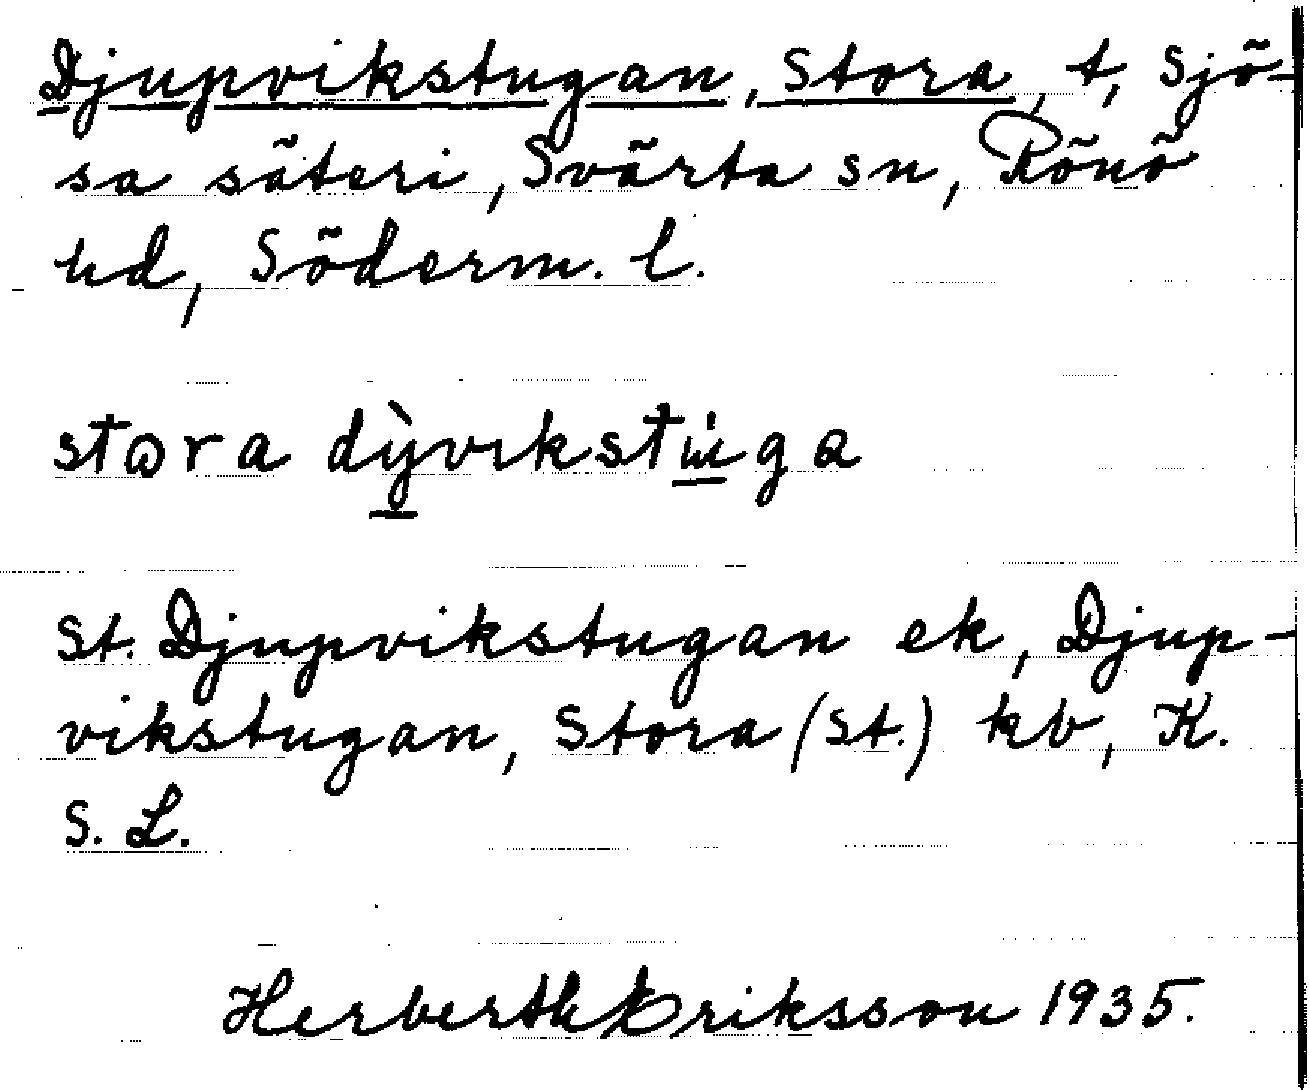 Djupvikstugan, Stora, t, Sjö-
sa säteri, Svärta sn, Rönö
hd, Söderm. l.
stora dỳvikstuga
St. Djupvikstugan ek, Djup-
vikstugan, Stora (St.) kb, K.
S. L.
Herberth Eriksson 1935.